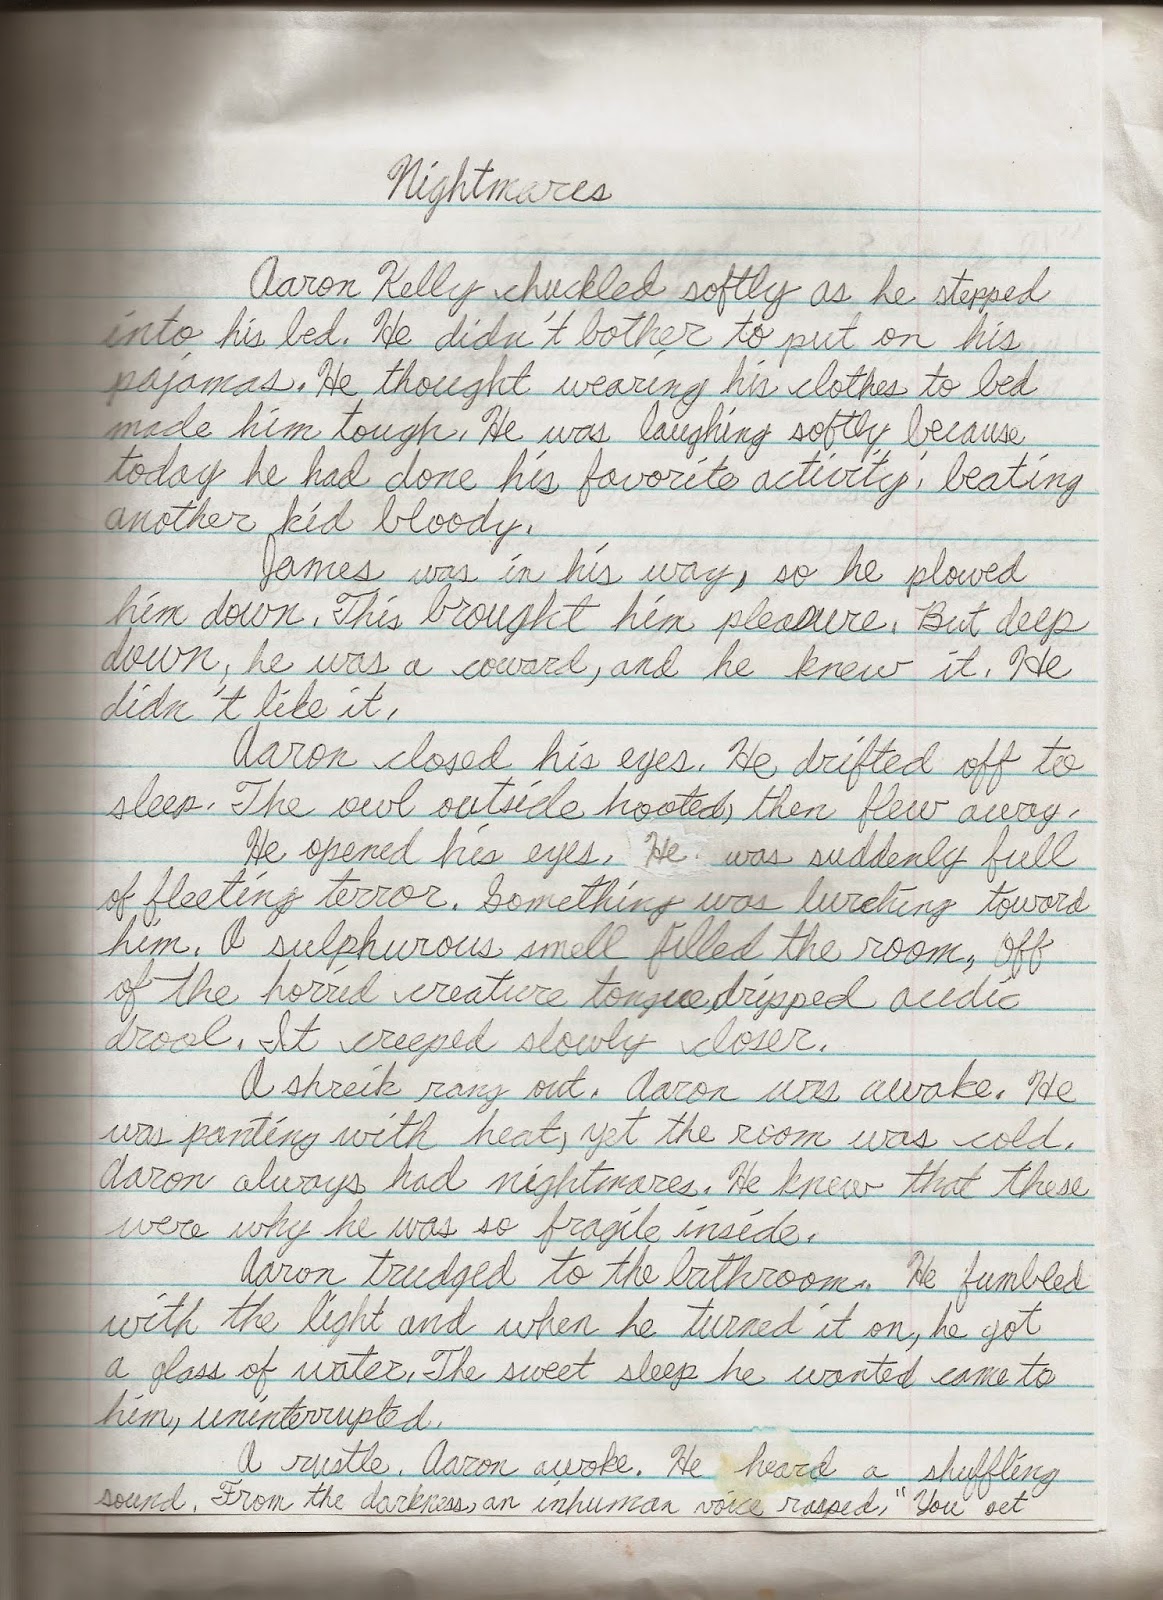 Nightmares
Aaron Kelly chuckled softly as he stepped
into his bed. He didn't bother to put on his
pajamas. He thought wearing his clothes to bed
made him tough. He was laughing softly because
today he had done his favorite activity; beating
another kid bloody.
James was in his way, so he plowed
him down. This brought him pleasure. But deep
down, he was a coward, and he knew it. He
didn't like it.
Aaron closed his eyes. He drifted off to
sleep. The owl outside hooted, then flew away.
He opened his eyes. He was suddenly full
of fleeting terror. Something was lurching toward
him. A sulphurous smell filled the room, Off
of the horrid creature tongue, dripped acidic
drool. It creeped slowly closer.
A shreik rang out. Aaron was awake. He
was panting with heat, yet the room was cold.
Aaron always had nightmares. He knew that these
were why he was so fragile inside.
Aaron trudged to the bathroom. He fumbled
with the light and when he turned it on, he got
a glass of water. The sweet sleep he wanted came to
him, uninterrupted.
A rustle. Aaron awoke. He heard a shuffling
sound. From the darkness, an inhuman voice rasped, "You